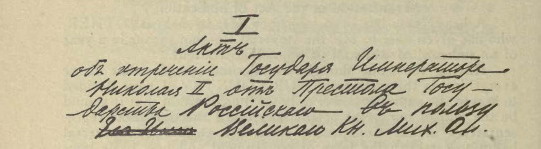 I
Актъ
объ отреченіи Государя Императора
Николая II отъ Престола Госу-
дарства Россійскаго въ пользу
Великаго Кн. Мих. Ал.